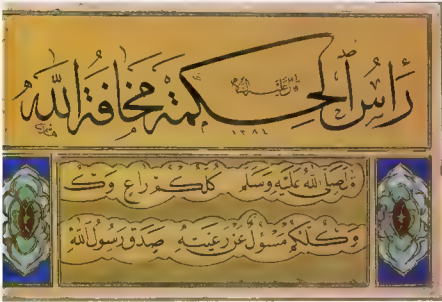 رَأسُ الحِكمَة مَخَافَةُ اللّٰه
١٣٨٤
صَلى اللهُ عَلَيْهِ وَسَلم كُلُّكُمْ رَاعٍ وَكُ
وَكُلُّكُمْ مَسْؤُلٌ عَنْ رَعِيَّتِهِ صَدَقَ رَسُولُ اللهِ